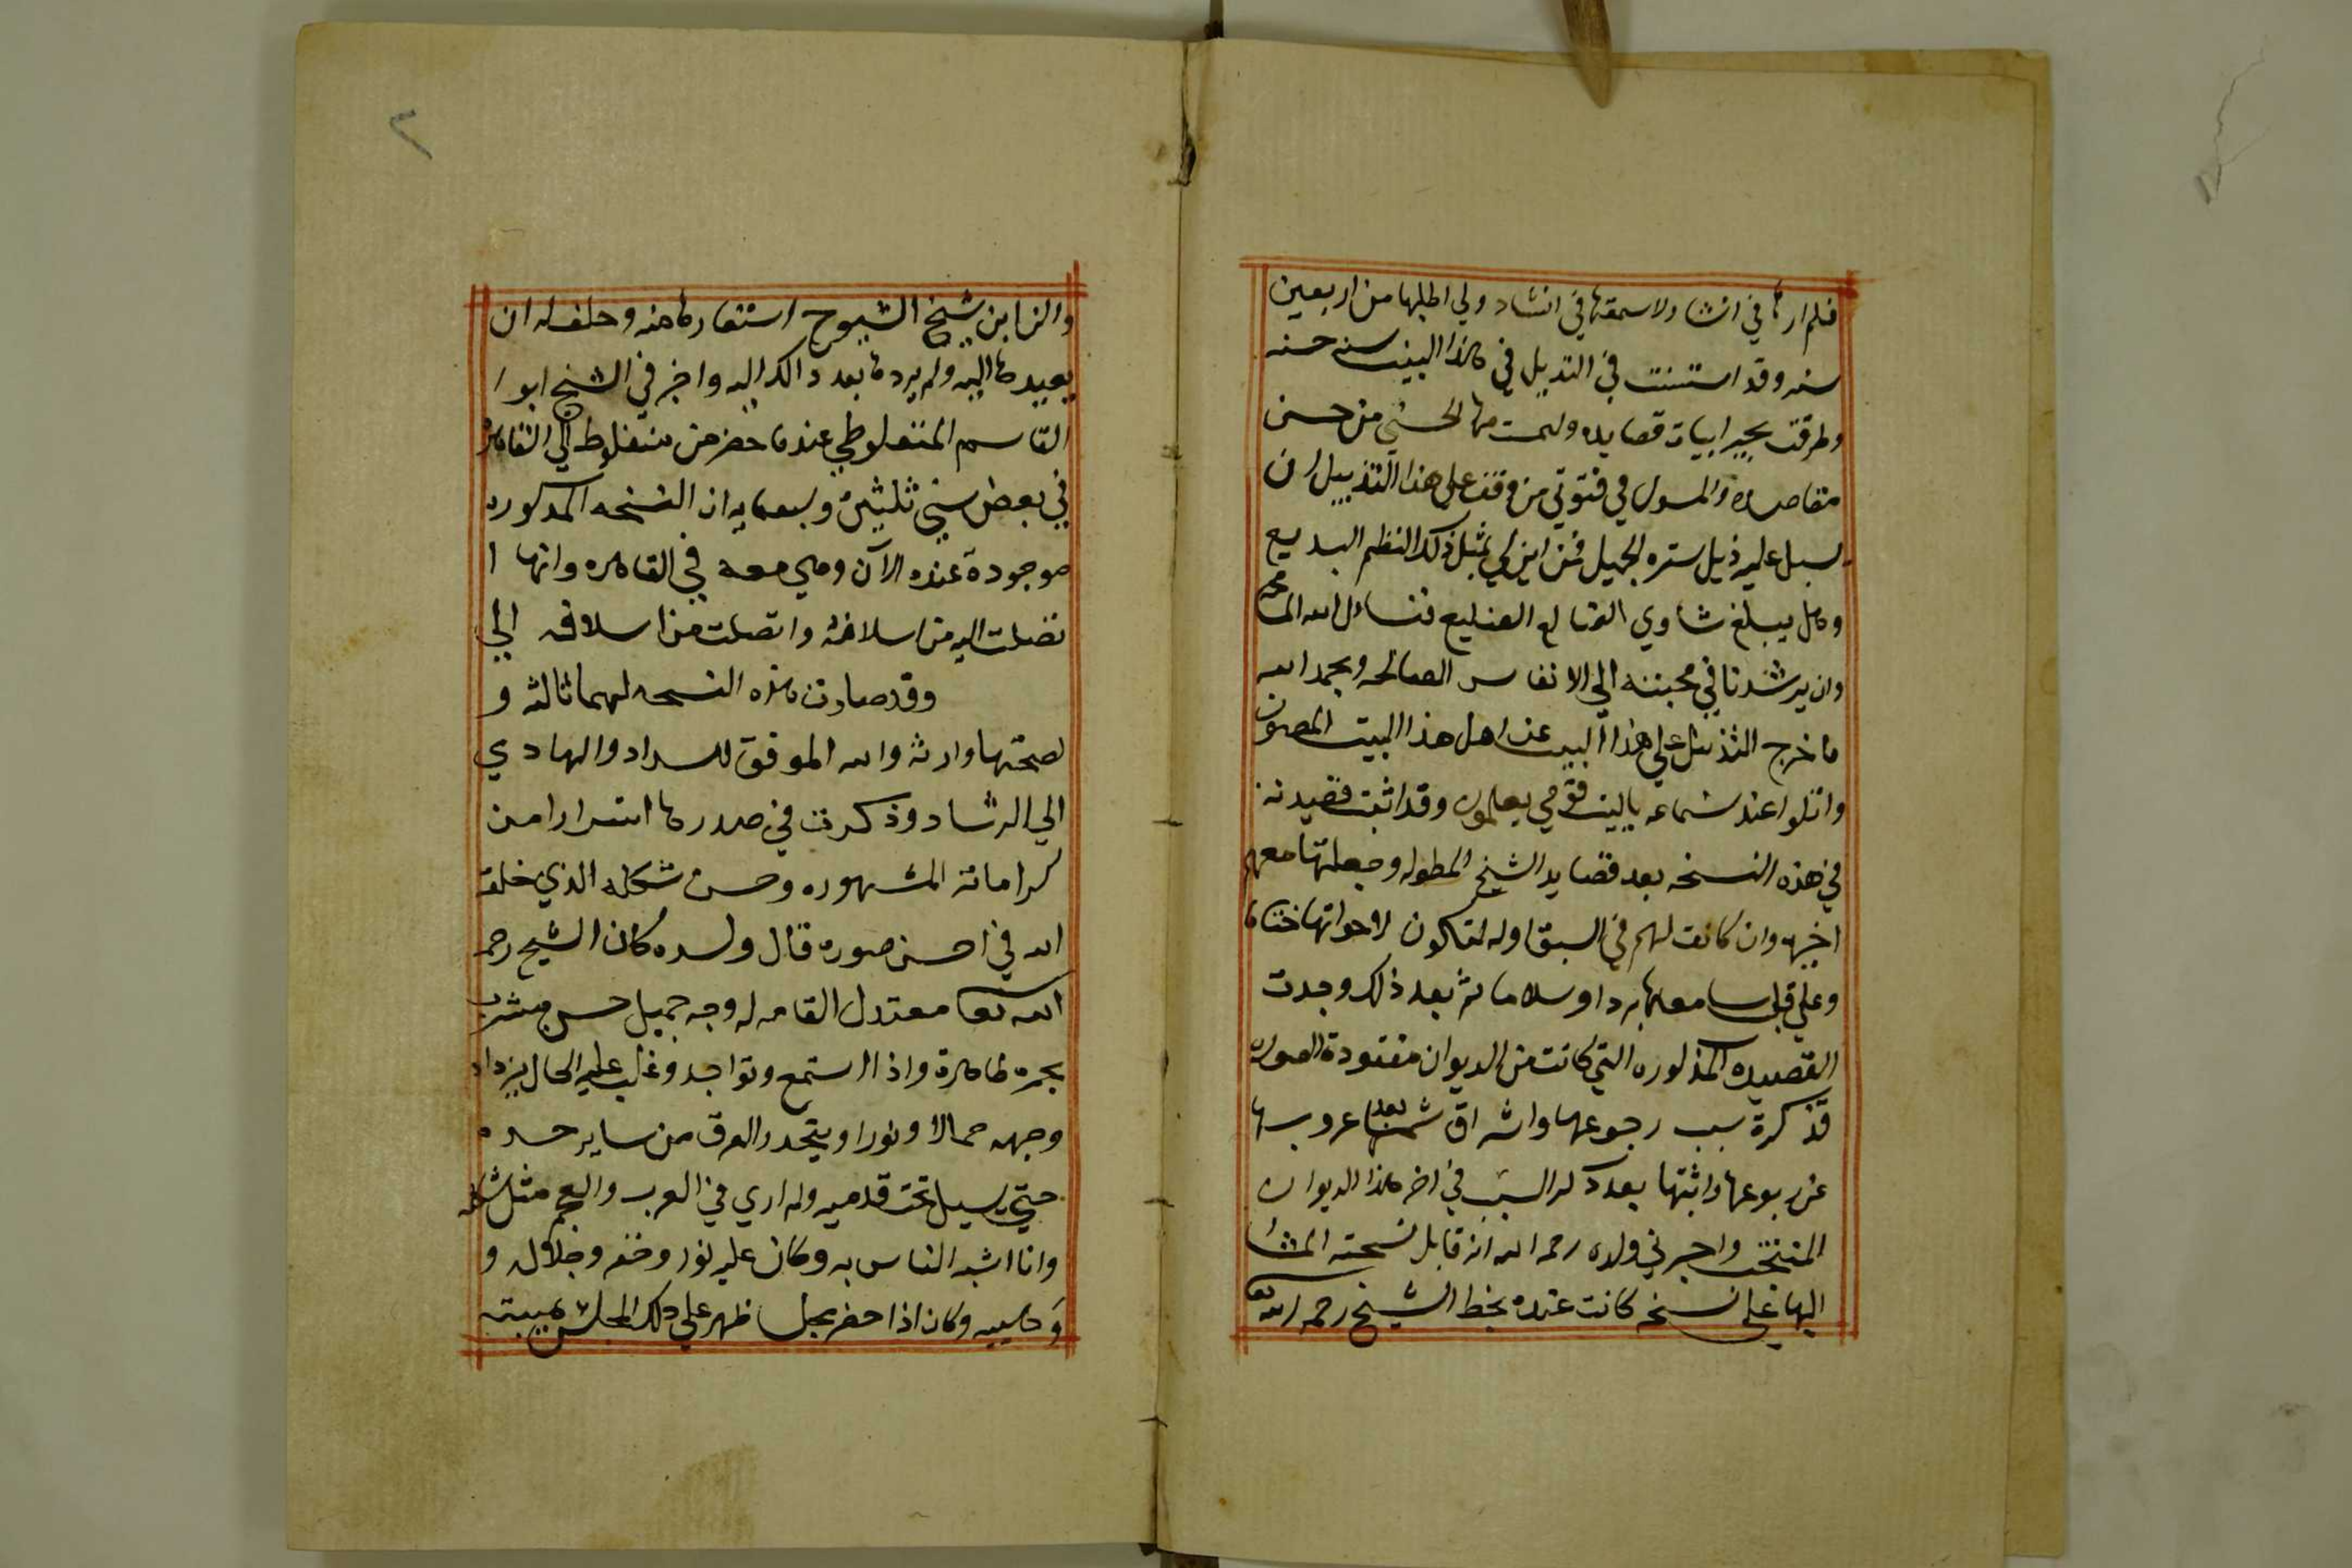 فلم ارها في انشا ولاسمعتها في انشاد ولي اطلبها من اربعين
سنه وقد استننت في التذييل في هذا البيت سنه حسنه
وطرقت بحير ابيات قصايده ولمست منها لحسني من حسن
مقاصده والمسول في فتوتي من وقف على هذا التذييل ان
يسبل عليه ذيل ستره الجميل فمن اين لي بمثل ذلك النظم البديع
وهل يبلغ شاوي الضالع الضليع فنسال الله
وان يرشدنا في محبته الي الانفاس الصالحه وبحمد الله
ما خرج التذييل على هذا البيت عن اهل هذا البيت المصون
واتلوا عند سماعه ياليت قومي يعلمون وقد اثبت قصيدته
في هذه النسخه بعد قصايد الشيخ المطوله وجعلتها معهم
اخيرا وان كانت لهم في السبق اوله لتكون لاخواتها ختاما
وعلي قلب سامعها بردا وسلاما ثم بعد ذلك وجدت
القصيده المذكوره التي كانت من الديوان مفقودة الصوره
فذكرة سبب رجوعها واشراق شمسها بعد غروبها
عن ربوعها واثبتها بعد ذكر السبب في اخر هذا الديوان
المنتخب واخبرني ولده رحمه الله انه قابل نسخته المشا
اليها على نسخه كانت عنده بخط الشيخ رحمه الله تعا
٢
والن ابن شيخ الشيوخ استعارها منه وحلف له ان
يعيدها اليه ولم يردها بعد دالك اليه واخبرني الشيخ ابوا
القاسم المنفلوطي عندما حضر من منفلوط الي القاهره
في بعض سني ثلثين وسبعمايه ان النسخه المدكوره
موجودة عنده الآن وهي معه في القاهره وانها ا
تصلت اليه من اسلافه واتصلت من اسلافه الي
وقد صارت هذه النسخه لهما ثالثه و
لصحتها وارثه والله الموفق للسداد والهادي
الي الرشاد وذكرت في صدرها اسرارا من
كراماته المشهوره وحسن شكله الذي خلقه
الله في احسن صوره قال ولده كان الشيخ رحمه
الله تعا معتدل القامه له وجه جميل حسن مشرب
بحمره ظاهرة واذا استمع وتواجد وغلب عليه الحال يزداد
وجهه جمالا ونورا ويتحدر العرق من ساير جسده
حتي يسيل تحت قدميه ولم اري في العرب والعجم مثل شكله
وانا اشبه الناس به وكان عليه نور وخفر وجلاله و
وهيبه وكان اذا حضر مجلسا ظهر على ذلك المجلس هيبته